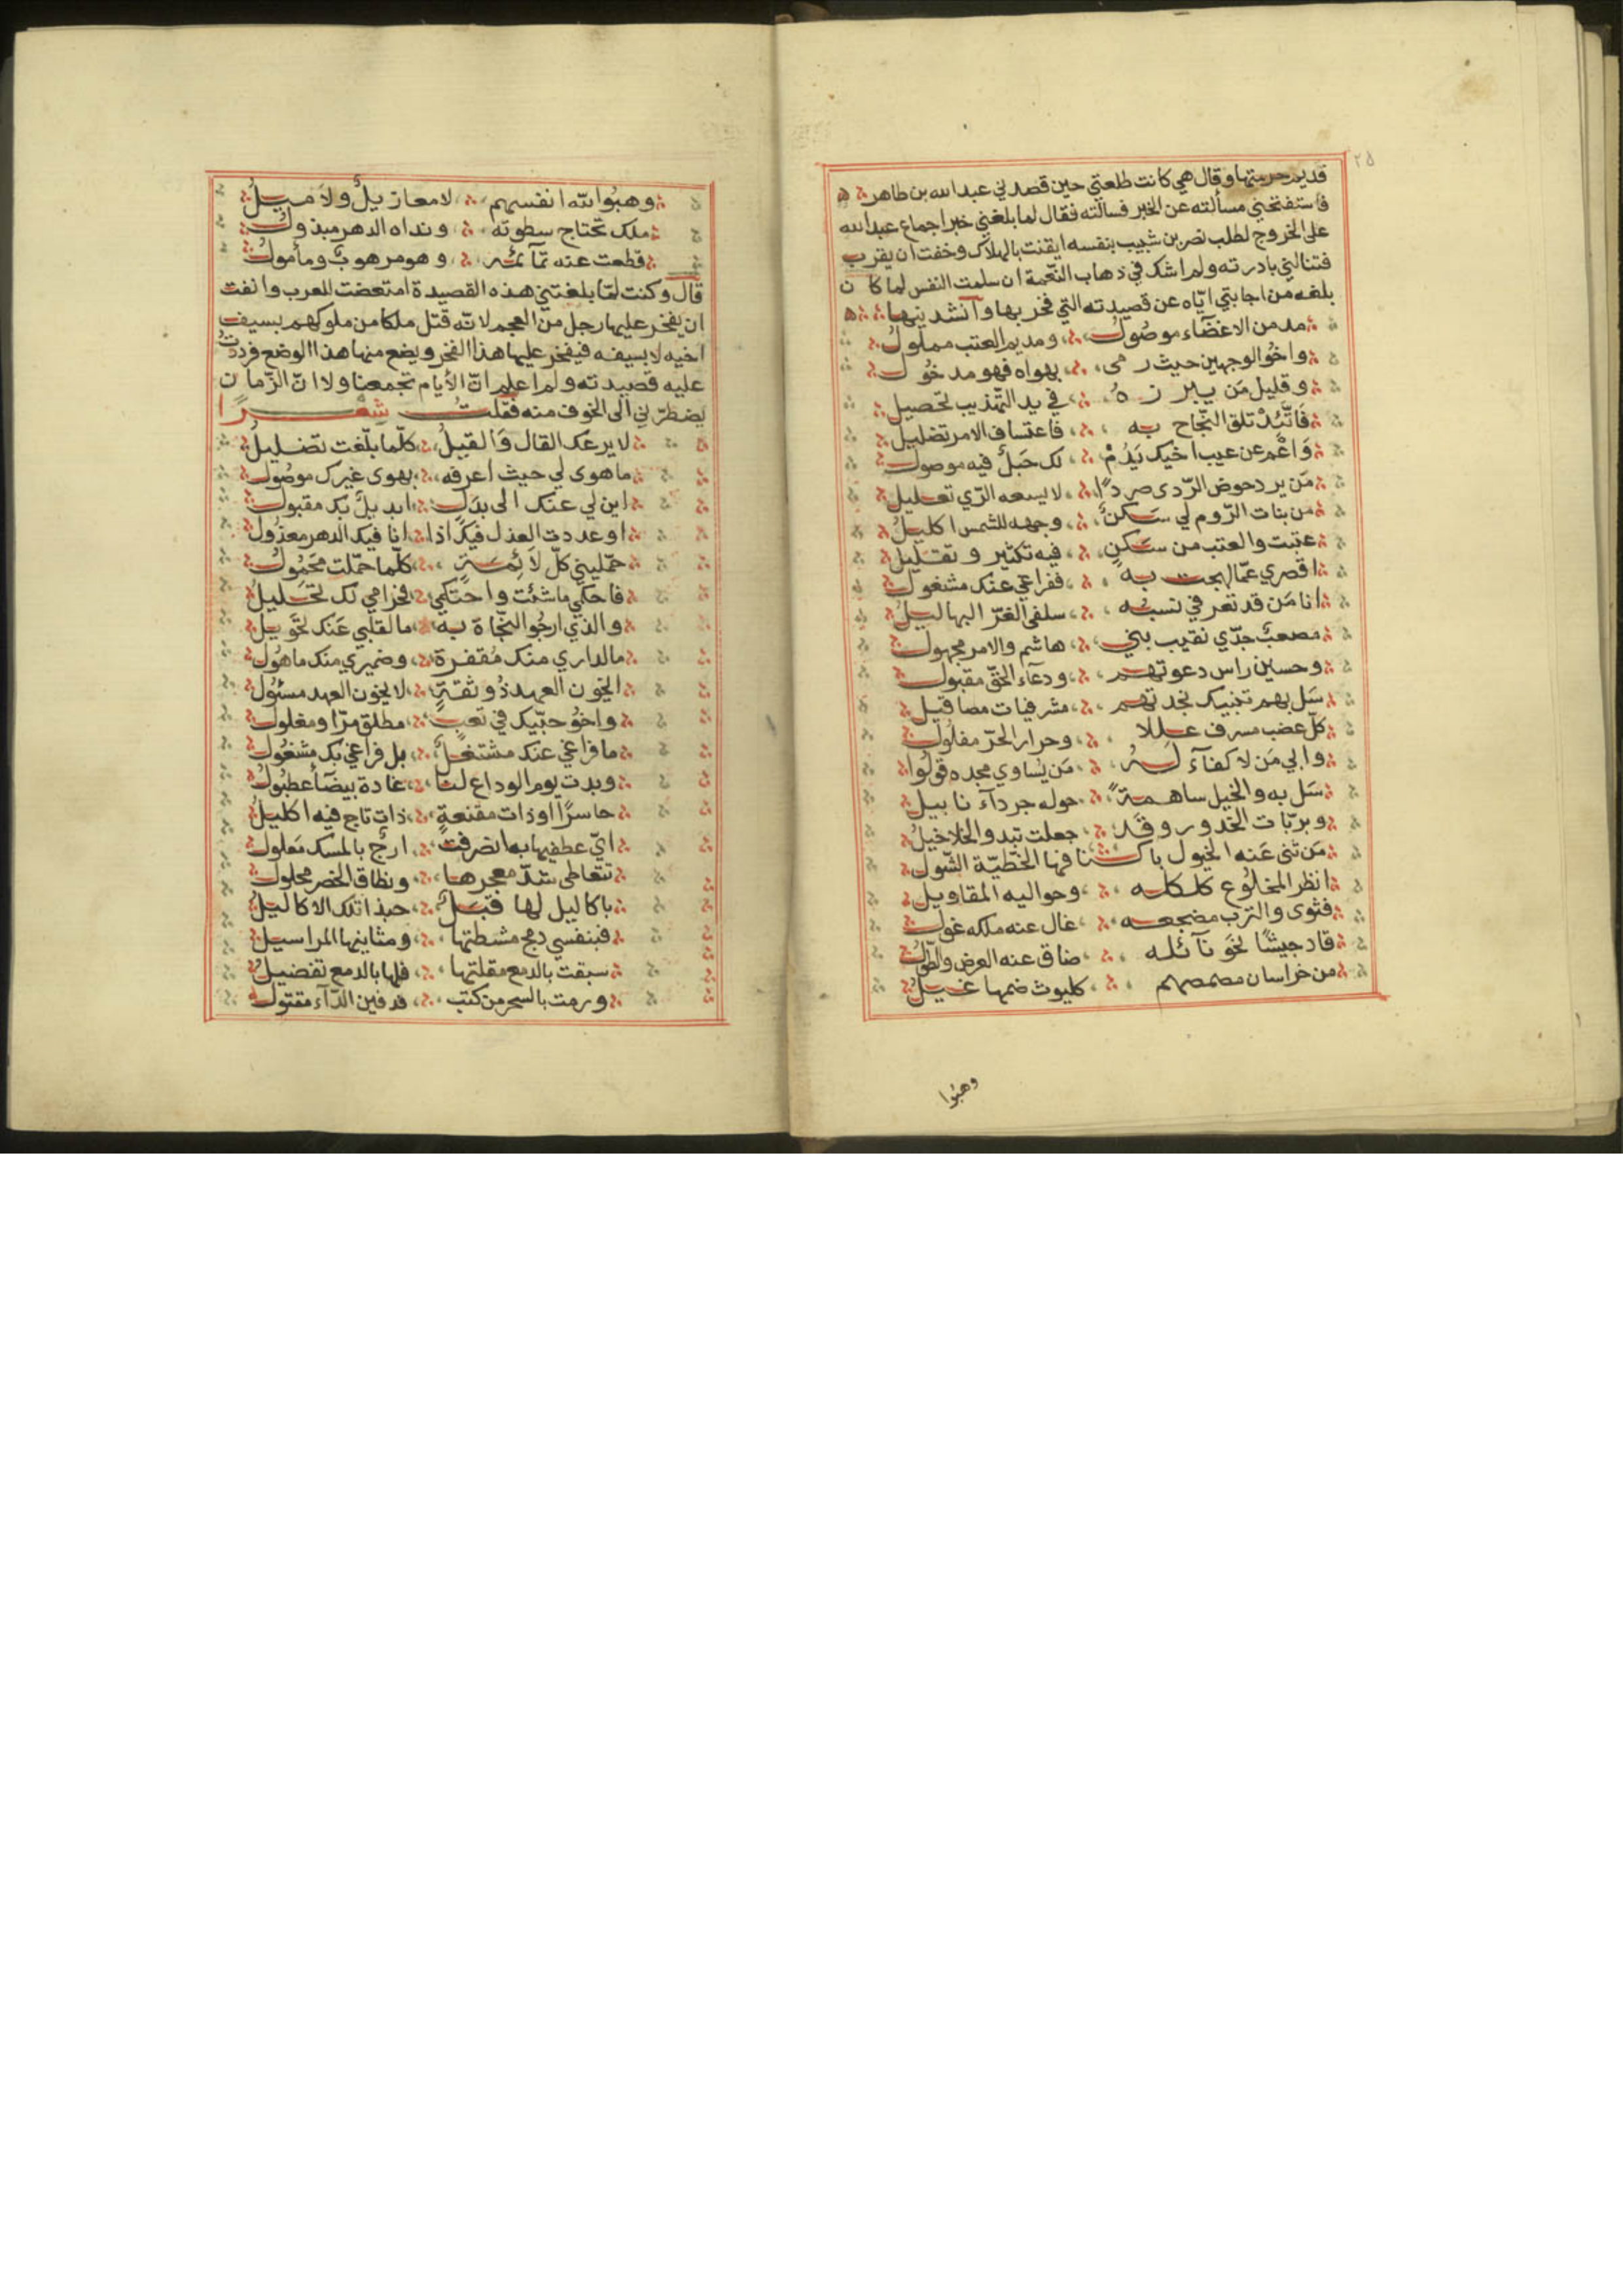 ٢٥
قديم حرمتها وقال هي كانت طلعتي حين قصدني عبد الله بن طاهر
فاستفتحني مسألته عن الخبر فسالته فقال لما بلغني خبر اجماع عبد الله
على الخروج لطلب نصر بن شبيب بنفسه ايقنت بالهلاك وخفت ان يقرب
فتنالني بادرته ولم اشك في ذهاب النعمة ان سلمت النفس لما كان
بلغه من اجابتي اياه عن قصيدته التي فخر بها وانشدنيها
مدمن الاغضآء موصول ومديم العتب مملول
واخو الوجهين حيث رمى بهواه فهو مدخول
وقليل من يبرزه في يد التهذيب تحصيل
فاتئد تلق النجاح به فاعتساف الامر تضليل
واغم عن عيب اخيك يدم لك حبل فيه موصول
من يرد حوض الردى صردًا لا يسعه الري تعليل
من بنات الروم لي سكن وجهه للشمس اكليل
عتبت والعتب من سكن فيه تكثير وتقليل
اقصري عما لهجت به ففراغي عنك مشغول
انا من قد تعرفي نسبه سلفي الغر البهاليل
مصعب جدي نقيب بني هاشم والامر مجهول
وحسين راس دعوتهم ودعآء الحق مقبول
سل بهم تنبيك نجدتهم مشرفيات مصاقيل
كل عضب مسرف عللا وحرار الحر مفلول
وابي من لا كفآء له من يساوي مجده قولوا
سل به والخيل ساهمة حوله جردآء نابيل
وبربات الخدور وقد جعلت تبدو الخلاخيل
من ثنى عنه الخيول باكنافها الخطية الشول
انظر المخلوع كلكله وحواليه المقاويل
فثوى والترب مضجعه غال عنه ملكه غول
قاد جيشًا نحو نآئله ضاق عنه العرض والطول
من خراسان مصمصهم كليوث ضمها غيل
وهبوا
وهبوا لله انفسهم لا معازيل ولا ميل
ملك تجتاح سطوته ونداه الدهر مبذول
قطعت عنه تمآئمه وهو مرهوب ومأمول
قال وكنت لما بلغتني هذه القصيدة امتعضت للعرب وانفت
ان يفخر عليها رجل من العجم لانه قتل ملكا من ملوكهم بسيف
اخيه لا بسيفه فيفخر عليها هذا الفخر ويضع منها هذا الوضع فرددت
عليه قصيدته ولم اعلم ان الأيام تجمعنا ولا ان الزمان
يضطرني الى الخوف منه فقلت شعرًا
لا يرعك القال والقيل كلما بلغت تضليل
ما هوى لي حيث اعرفه بهوى غيرك موصول
اين لي عنك الى بدل ابديل بك مقبول
او عددت العذل فيك اذا انا فيك الدهر معذول
حمليني كل لائمة كلما حملت محمول
فاحكمي ما شئت واحتكمي فحرامي لك تحليل
والذي ارجو النجاة به ما لقلبي عنك تحويل
ما لداري منك مقفرة وضميري منك ماهول
ايخون العهد ذو ثقة لا يخون العهد مسئول
واخو حبيك في تعب مطلق مرا ومغلول
ما فراغي عنك مشتغل بل فراغي بك مشغول
وبدت يوم الوداع لنا غادة بيضآ عطبول
حاسرًا او ذات مقنعة ذات تاج فيه اكليل
اي عطفيها به انصرفت ارج بالمسك معلول
تتعاطى شد معجرها ونطاق الخصر محلول
باكاليل لها قبل حبذا تلك الاكاليل
فبنفسي دمج مشطتها ومثانيها المراسيل
سبقت بالدمع مقلتها فلها بالدمع تفضيل
ورمت بالسحر من كتب فدفين الدآء مقتول